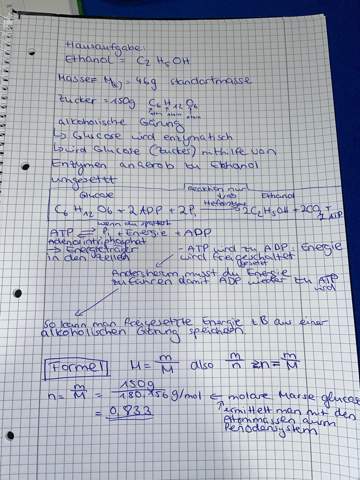 Hausaufgabe:
Ethanol = C2 H5OH
Masse = 46g standartmasse
Zucker = 150g C6H12O6
alkoholische Gärung
↳ Glucose wird enzymatisch
↳ wird Glucose (Zucker) mithilfe von
Enzymen anaerob zu Ethanol
umgesetzt
Reaktion nur
Glucose durch Ethanol
C6H12O6 + 2ADP + 2Pi → 2C2H5OH + 2CO2 +
2ATP
ATP ⇌ Pi + Energie + ADP
Adenosintriphosphat - ATP wird zu ADP. Energie
→ Energieträger wird freigeschaltet
in den Zellen gesetzt
Andersherum musst du Energie
zuführen damit ADP wieder zu ATP
wird
So kann man freigesetzte Energie z.B aus einer
alkoholischen Gärung speichern
Formel M = m/n also m/n n = m/M
n = m/M = 150g / 180.156 g/mol ← molare Masse glucose
= 0,833 ermittelt man mit den
Atommassen aus dem
Periodensystem